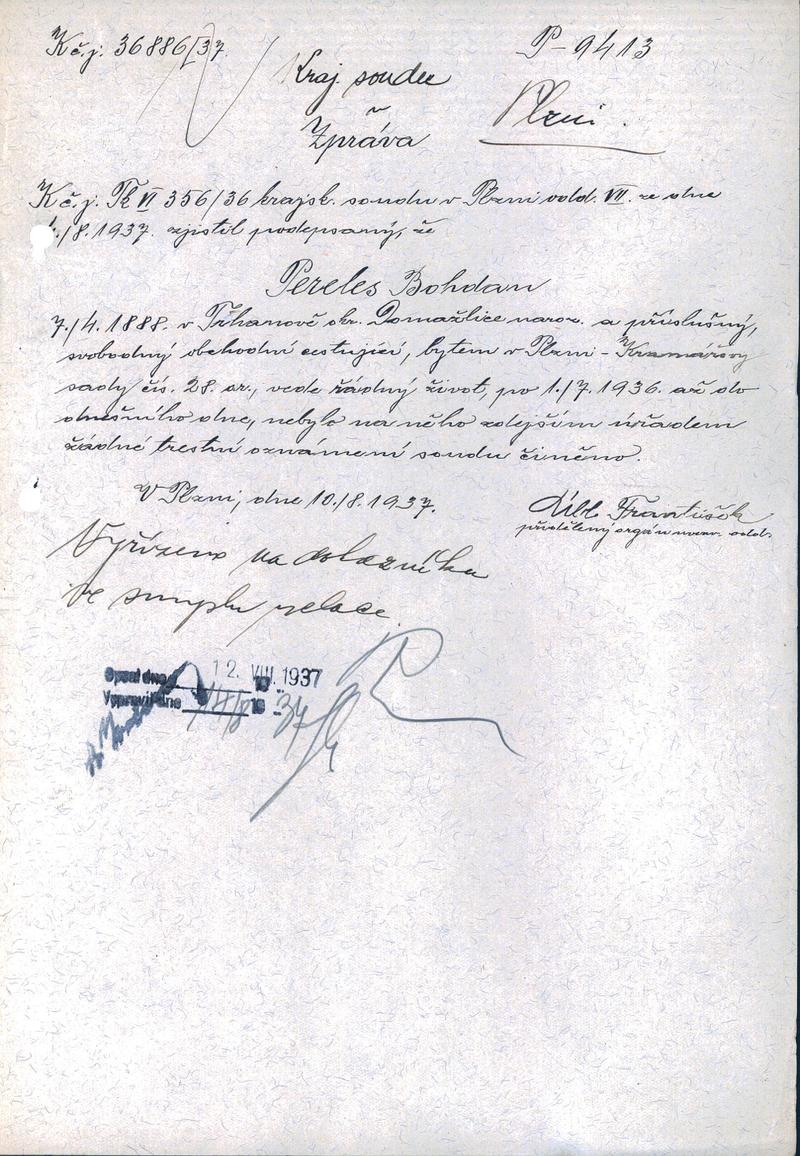 K č.j. 36886/37
P-9413
Kraj. soudu
v
Plzni.
Zpráva
K č.j. Tk VI 356/36 krajsk. soudu v Plzni odd. VII. ze dne
/8. 1937. zjistil podepsaný, že
Pereles Bohdan
7./4. 1888. v Trhanově okr. Domažlice naroz. a příslušný,
svobodný obchodní cestující, bytem v Plzni - Kramářovy
sady čís. 28. vede řádný život, po 1./7. 1936. až do
dnešního dne, nebylo na něho zdejším úřadem
žádné trestní oznámení soudu činěno.
V Plzni, dne 10./8. 1937.
František
přidělený orgán odd.
Vyřízeno na dotazníku
ve smyslu relace.
Opsal dne 12. VIII. 1937
Vypravil dne 14/8 1937